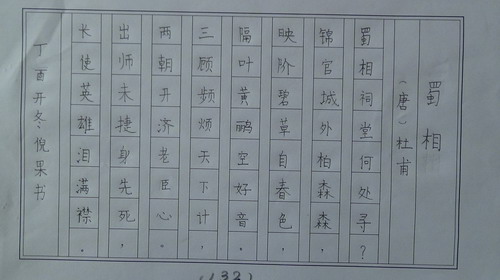 蜀相
（唐）杜甫
蜀相祠堂何处寻？
锦官城外柏森森，
映阶碧草自春色，
隔叶黄鹂空好音。
三顾频烦天下计，
两朝开济老臣心。
出师未捷身先死，
长使英雄泪满襟。
丁酉开冬倪果书
(132)